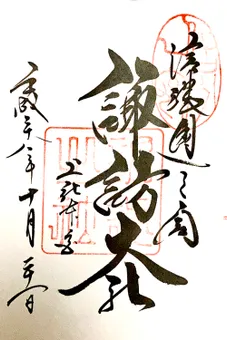 信濃國一之宮
諏訪大社
上社本宮
平成二十八年十月二十一日